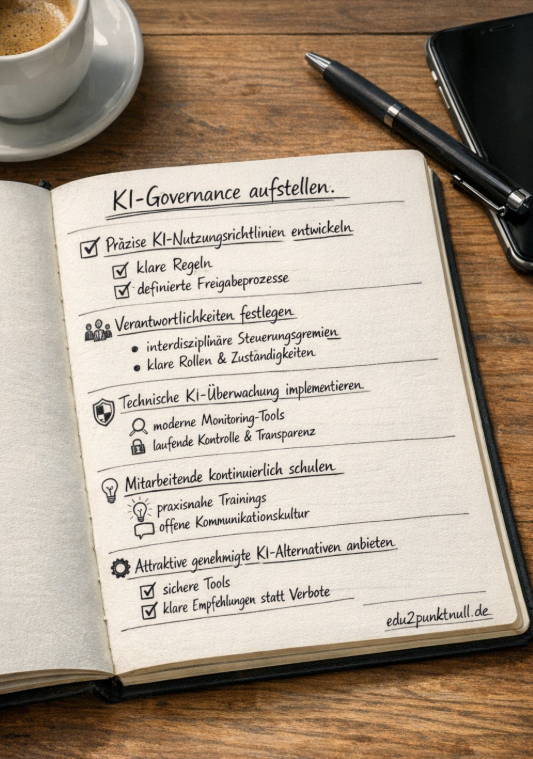 KI-Governance aufstellen.
Präzise KI-Nutzungsrichtlinien entwickeln
klare Regeln
definierte Freigabeprozesse
Verantwortlichkeiten festlegen
interdisziplinäre Steuerungsgremien
klare Rollen & Zuständigkeiten
Technische KI-Überwachung implementieren.
moderne Monitoring-Tools
laufende Kontrolle & Transparenz
Mitarbeitende kontinuierlich schulen
praxisnahe Trainings
offene Kommunikationskultur
Attraktive genehmigte KI-Alternativen anbieten
sichere Tools
klare Empfehlungen statt Verbote
edu2punktnull.de